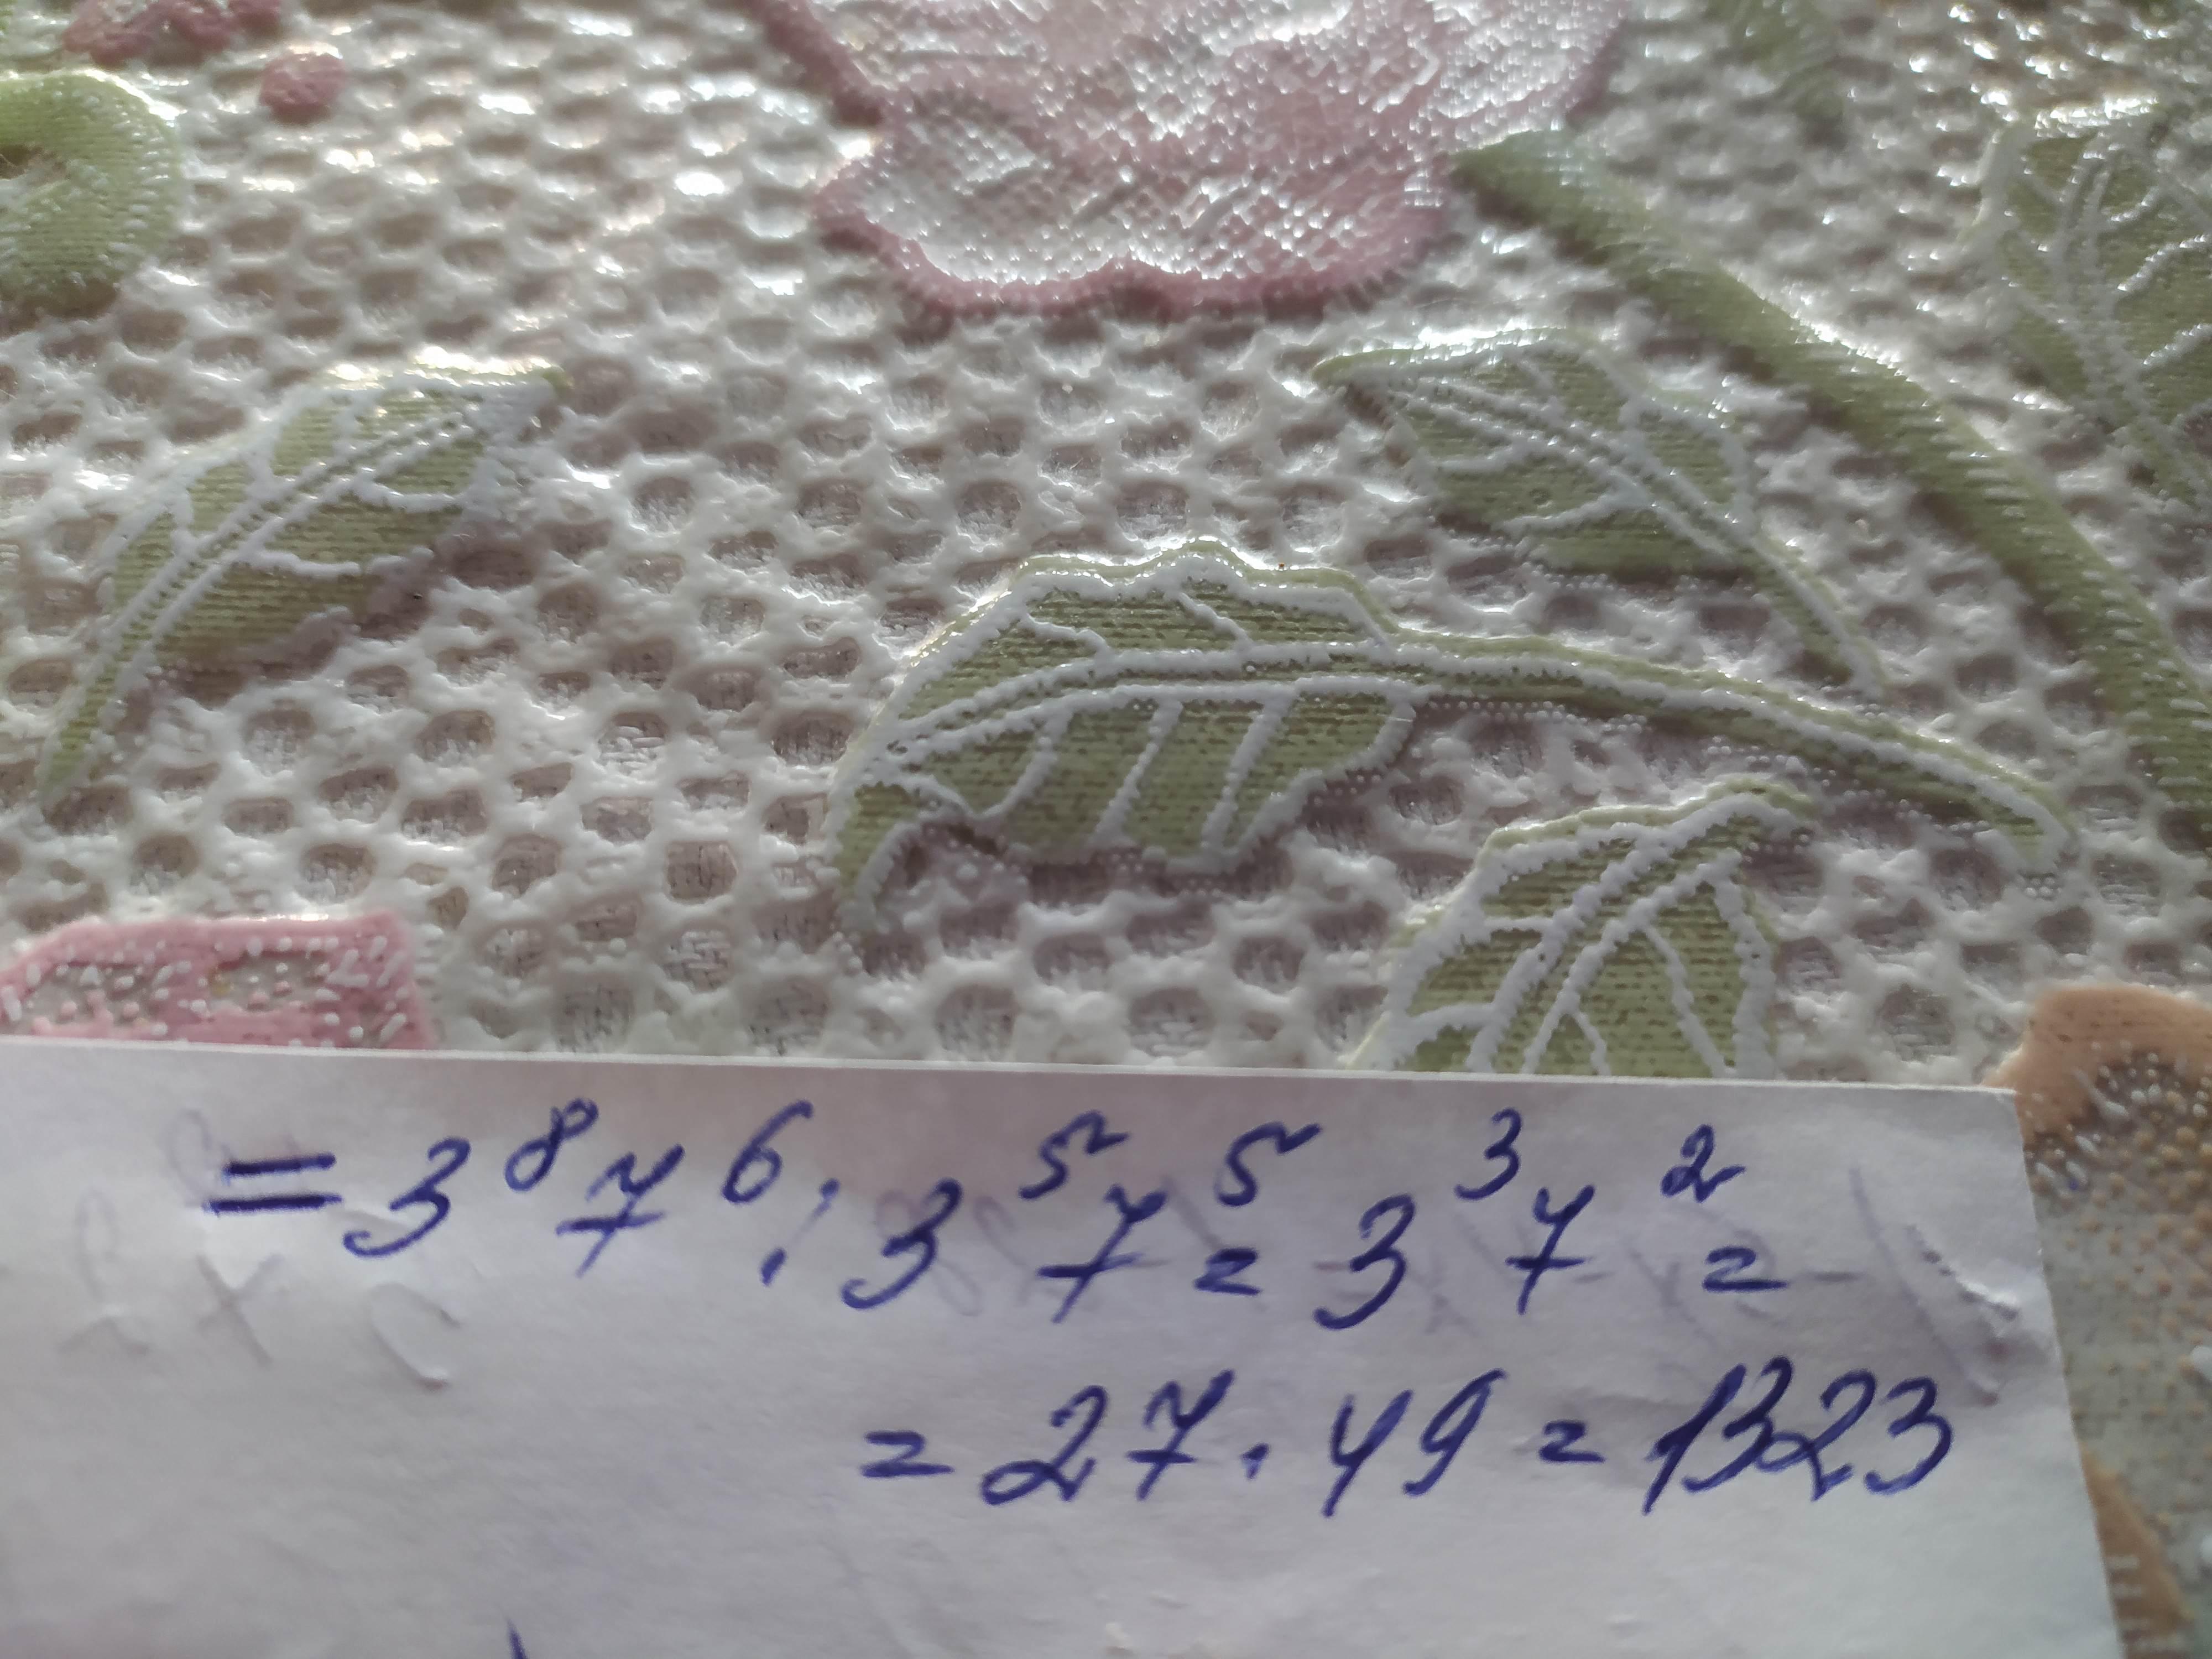 = 3⁸7⁶ : 3⁵7⁵ = 3³7² =
= 27 · 49 = 1323